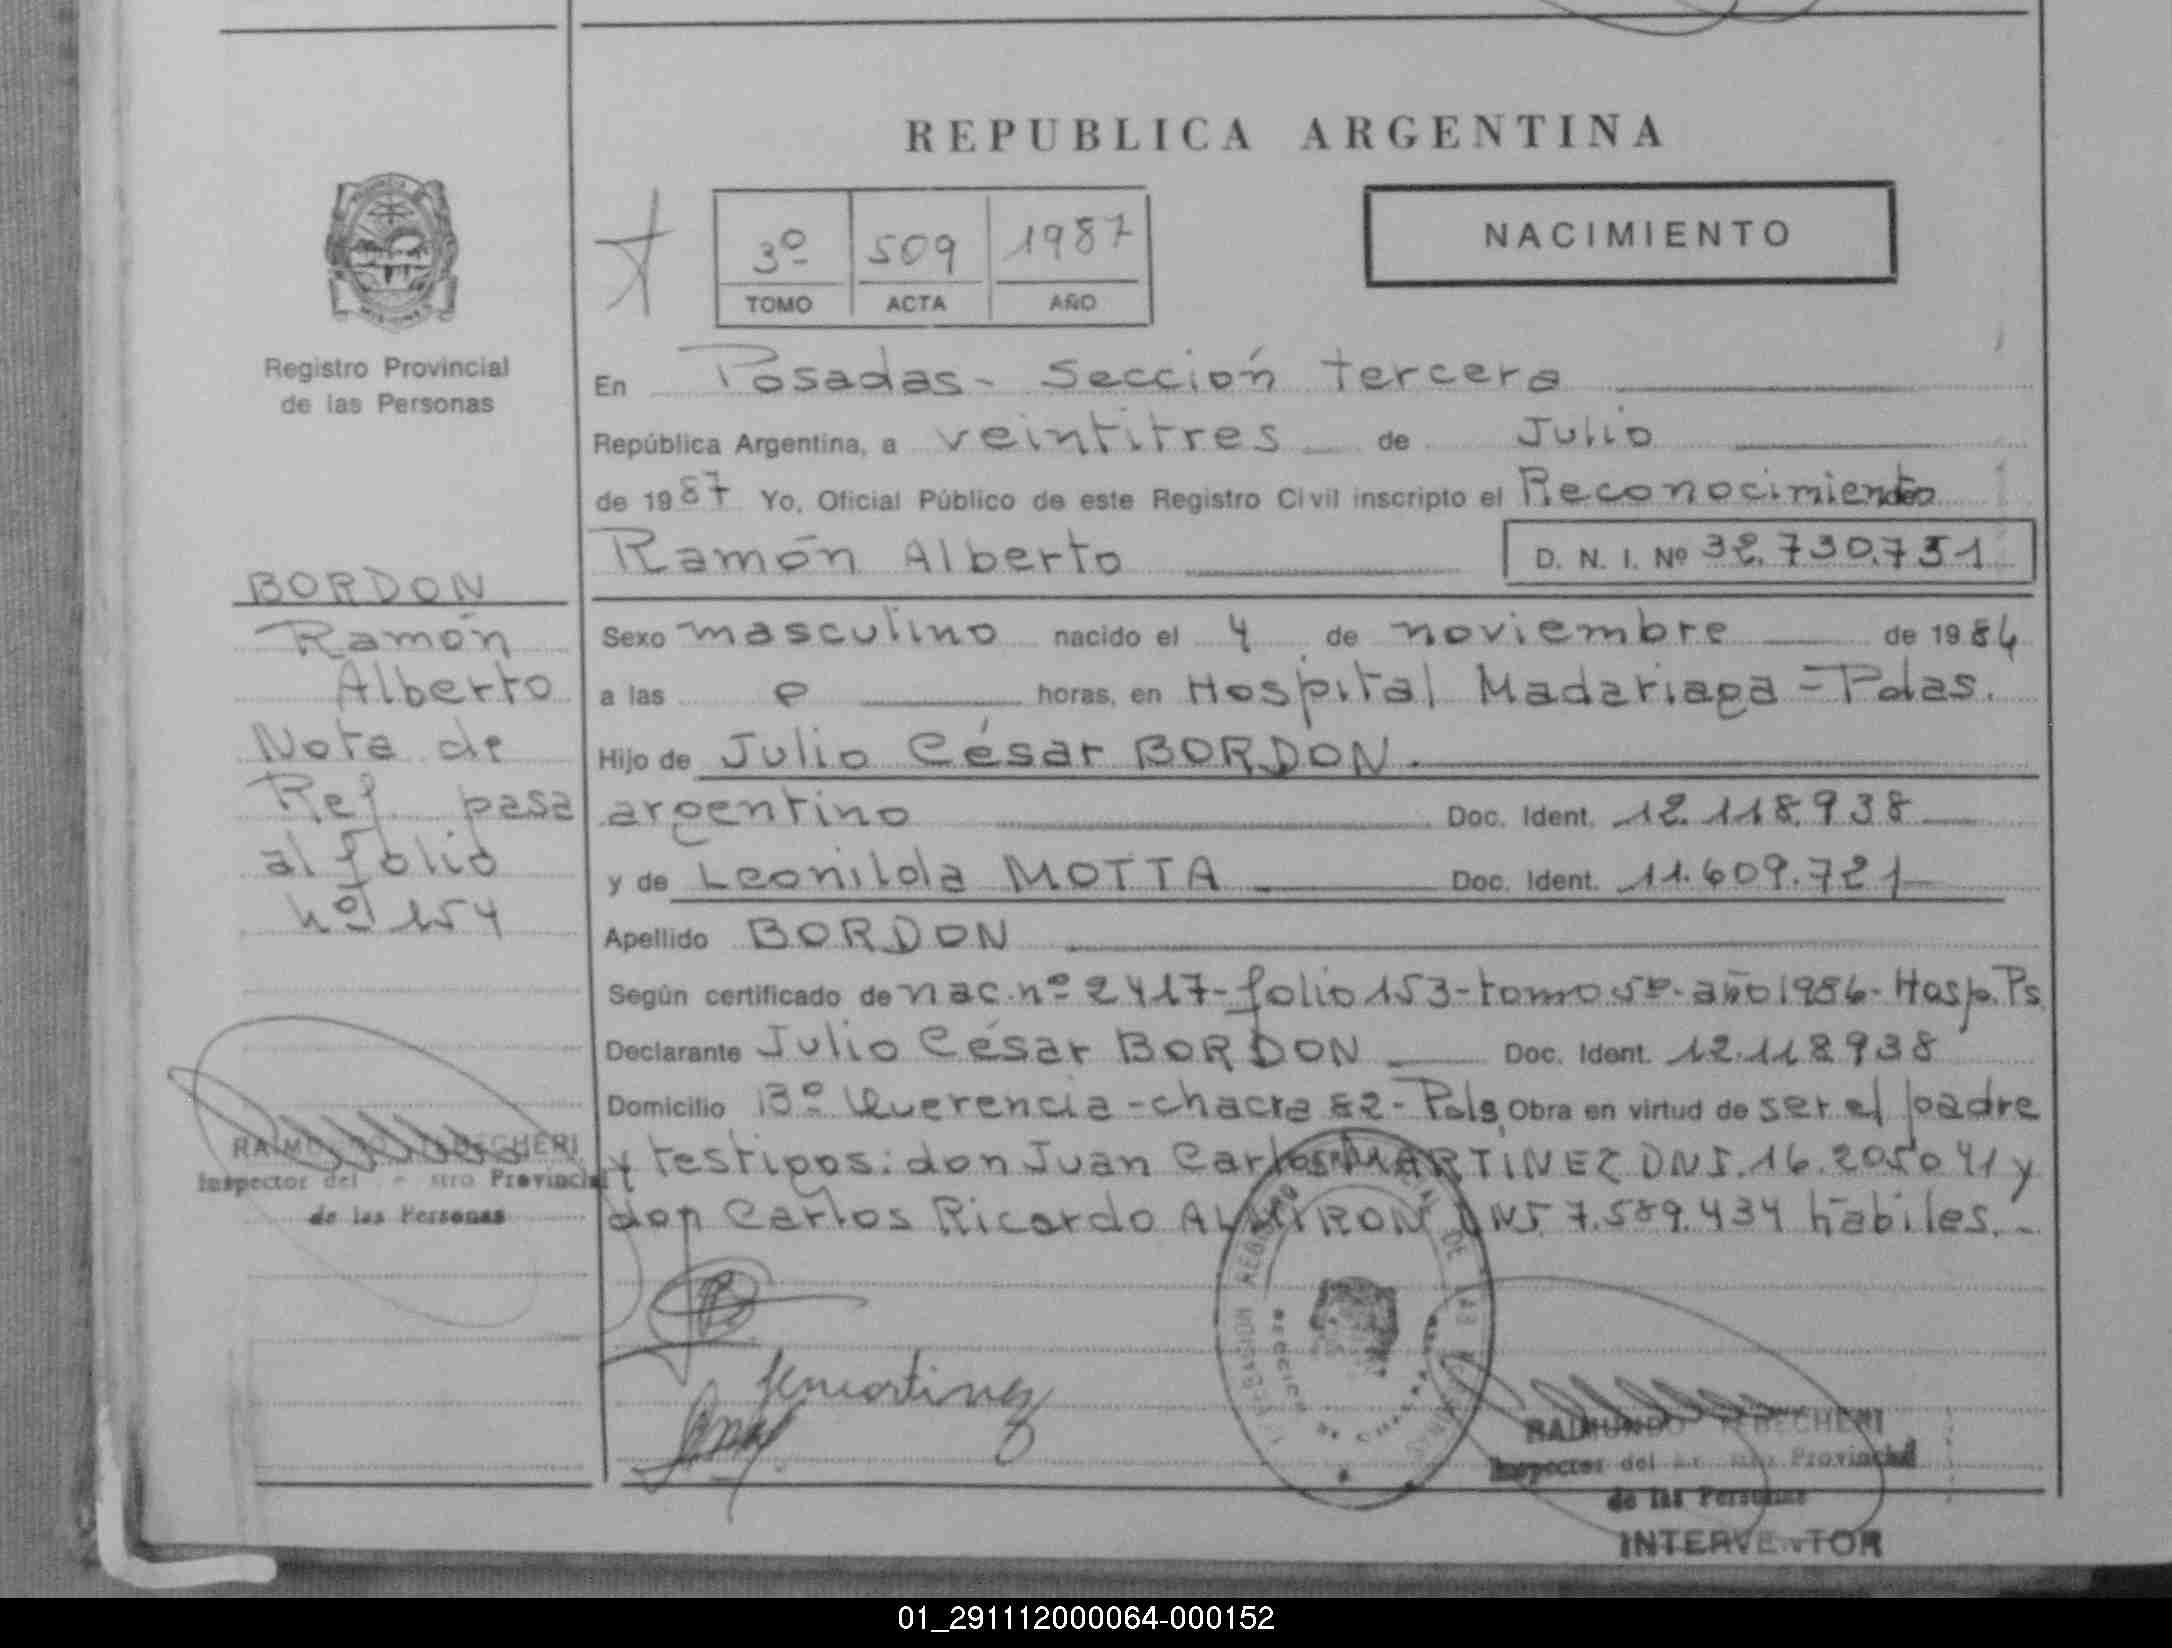 REPUBLICA ARGENTINA
NACIMIENTO
3º 509 1987
TOMO ACTA AÑO
Registro Provincial
de las Personas
BORDON
Ramón
Alberto
Nota de
Ref. pasa
al folio
nº 154
RAIMUNDO TERECHERI
Inspector del Provincial
de las Personas
En Posadas - Sección tercera
República Argentina, a veintitres de Julio
de 1987 Yo, Oficial Público de este Registro Civil inscripto el Reconocimiento
Ramón Alberto D. N. I. Nº 32.730.731
Sexo masculino nacido el 4 de noviembre de 1986
a las horas, en Hospital Madariaga - Pdas.
Hijo de Julio César BORDON.
argentino Doc. Ident. 12.118.938
y de Leonilda MOTTA Doc. Ident. 11.609.721
Apellido BORDON
Según certificado de nac. nº 2417 - folio 153 - tomo 5º - año 1986 - Hosp. Ps
Declarante Julio César BORDON Doc. Ident. 12.118.938
Domicilio Bº Querencia - chacra 82 - Pds, Obra en virtud de ser el padre
y testigos: don Juan Carlos MARTINEZ DNI. 16.205.041 y
don Carlos Ricardo ALMIRON DNI 7.589.434 hábiles. -
RAIMUNDO TERECHERI
Inspector del Provincial
de las Personas
INTERVENTOR
01_291112000064-000152